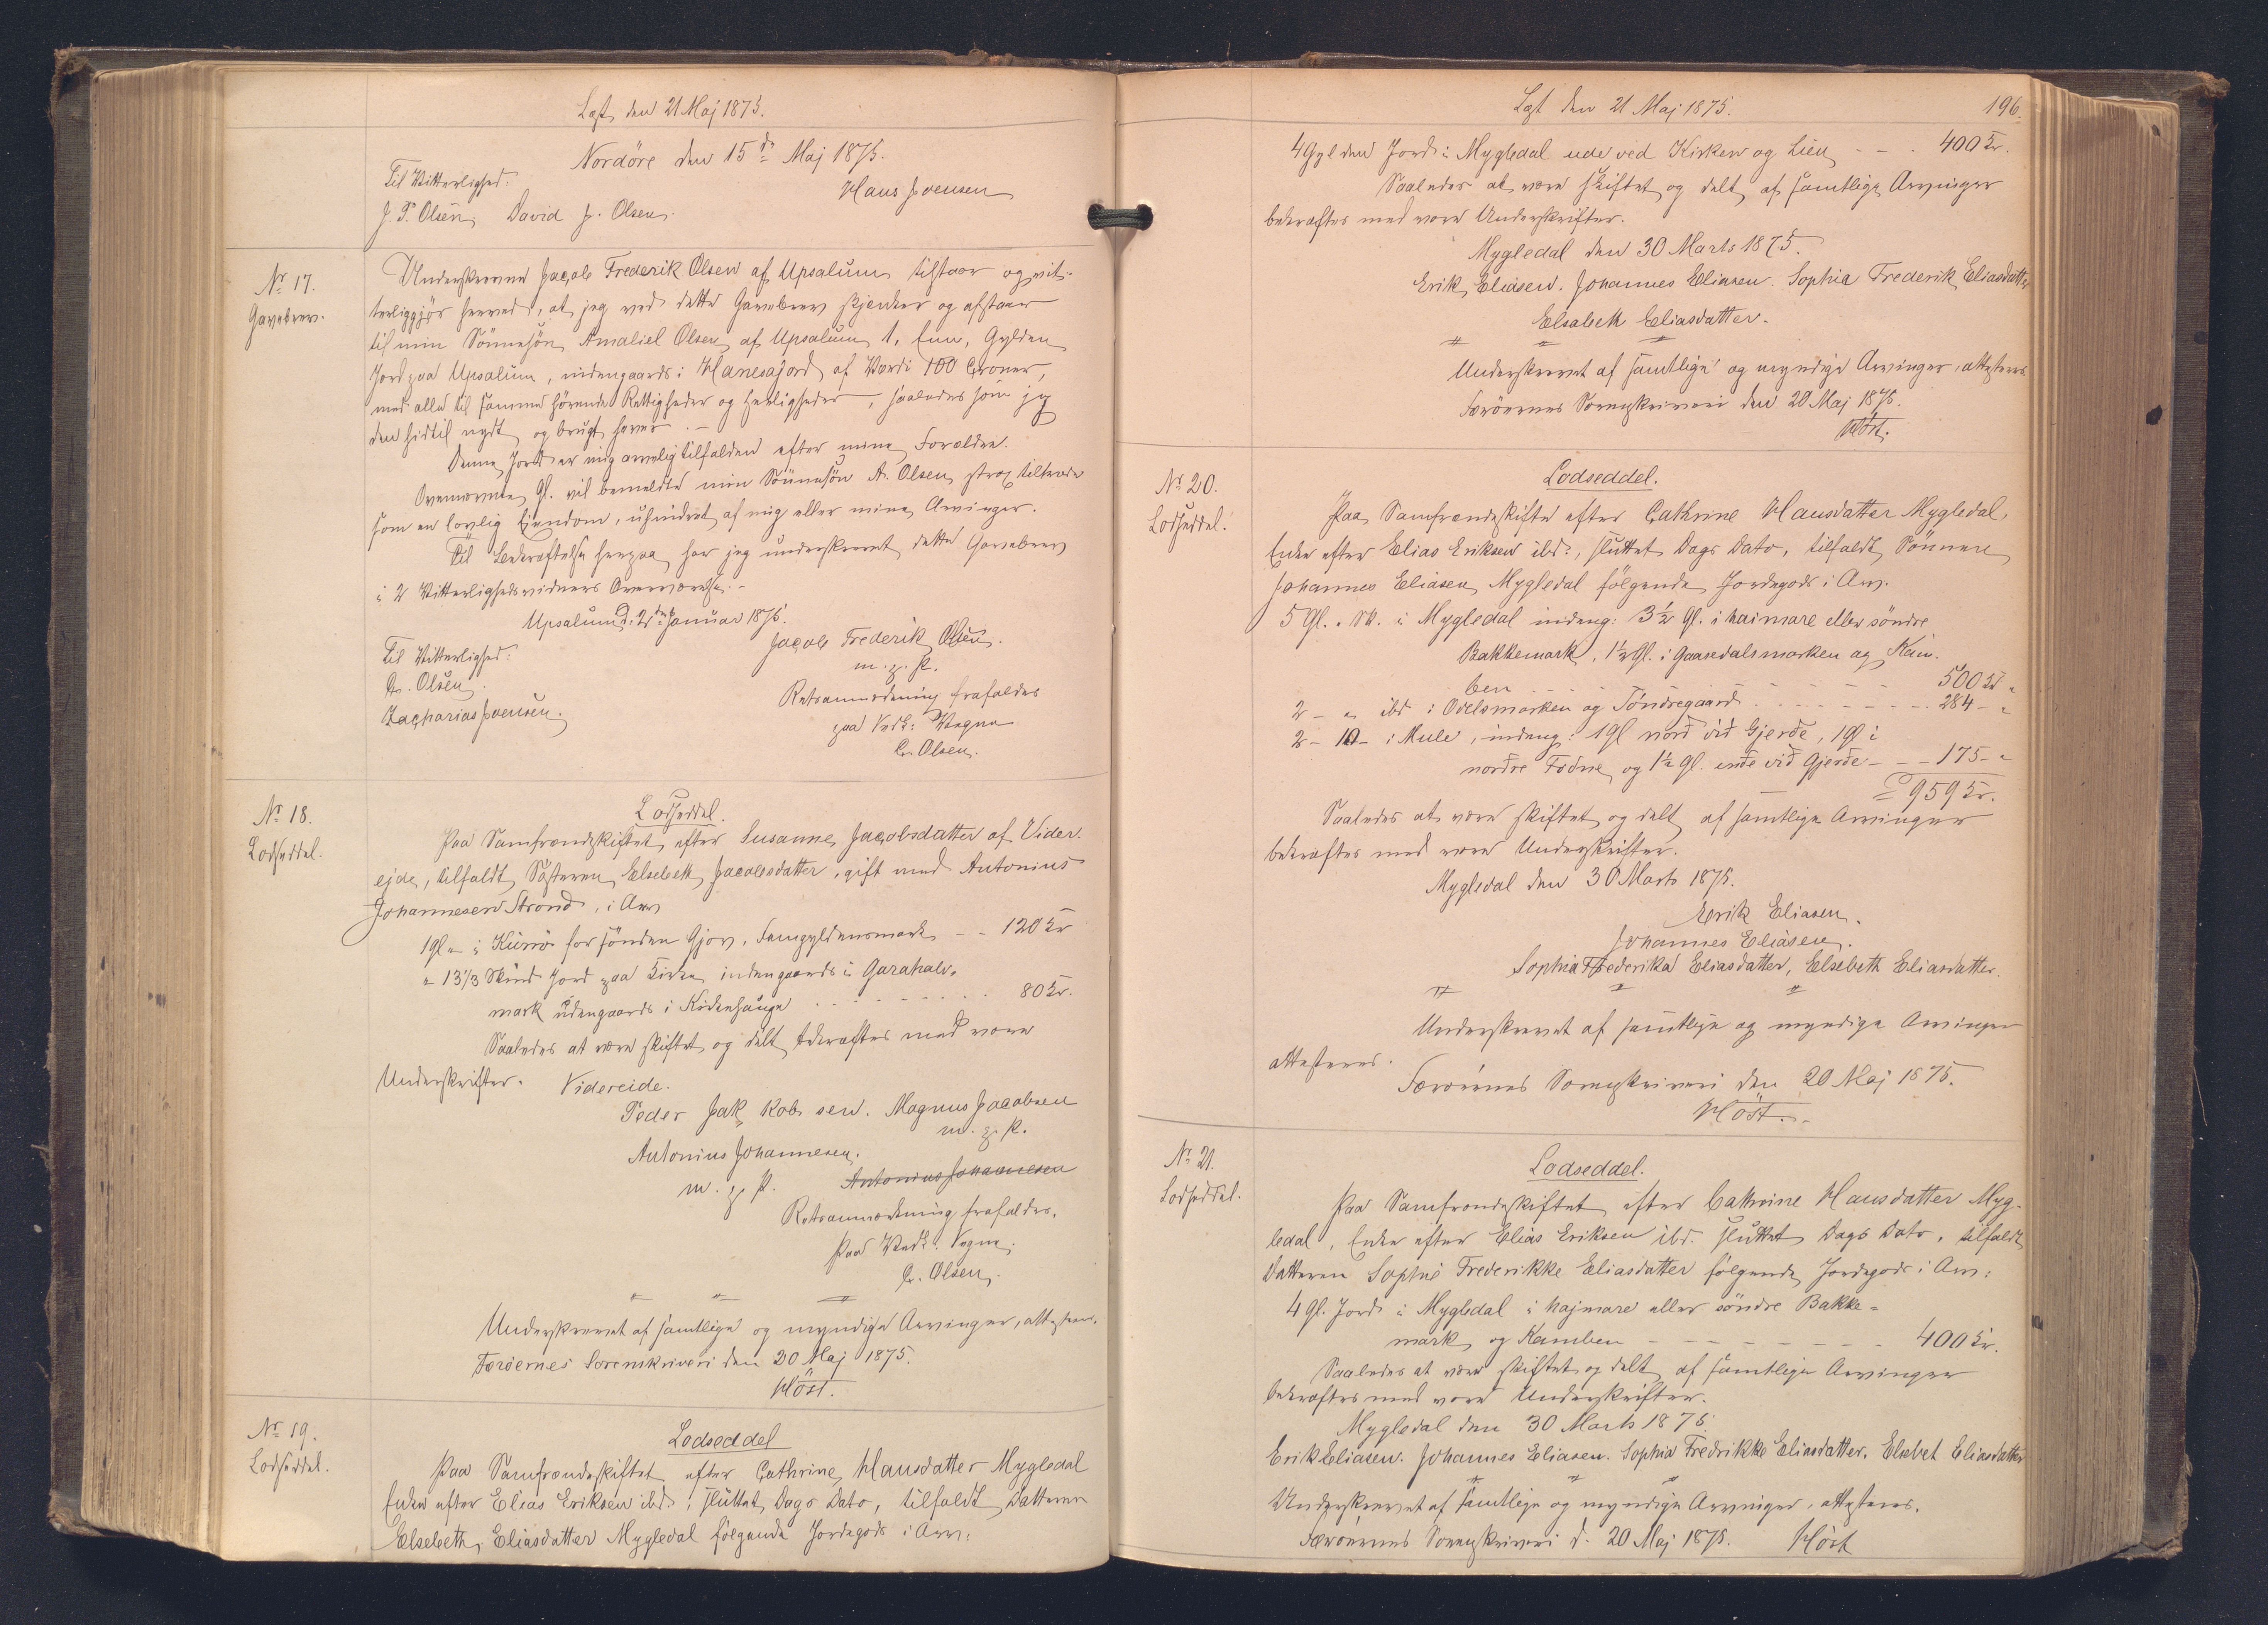 Læst den 21 Maj 1875.
Nordöre den 15de Maj 1875.
Til Vitterlighed:
Hans Joensen
J. P. Olsen, David J. Olsen.
No 17.
Gavebrev.
Underskrevne Jacob Frederik Olsen af Upsalum tilstaar og vit-
terliggjör herved, at jeg ved dette Gavebrev skjenker og afstaar
til min Sönnesön Amaliel Olsen af Upsalum 1, een, Gylden
Jord paa Upsalum, indengaards i Hanesajord af Værdi 100 Kroner,
med alle til samme hörende Rettigheder og Herligheder, saaledes som jeg
den hidtil nydt og brugt haver.-
Denne Jord er mig arvelig tilfalden efter mine Forældre.
Ovennævnte Gl. vil bemeldte min Sönnesön A. Olsen strax tiltræde
som en lovlig Eiendom, uhindret af mig eller mine Arvinger.
Til Bekræftelse herpaa har jeg underskrevet dette Gavebrev
i 2 Vitterlighedsvidners Overværelse.-
Upsalum d. 2den Januar 1875.
Til Vitterlighed:
Jacob Frederik Olsen.
m. p. P.
Olsen.
Zacharias Joensen.
Retsanmærkning frafaldes
paa Vedk: Vegne
Olsen.
No 18.
Lodseddel.
Lodseddel.
Paa Samfrændeskiftet efter Susanne Jacobsdatter af Vider-
ejde, tilfaldt Sösteren Elsebeth Jacobsdatter, gift med Antonius
Johannesen Strond, i Arv
1 gl " i Kunö for sönden Gjov, Femgyldensmark - - 120 Kr
" 13 1/3 Skind Jord paa Kirke indengaards i Garahalv-
mark udengaards i Kirkenhauge . . . . 80 Kr.
Saaledes at være skiftet og delt bekræftes med vore
Underskrifter. Videreide.
Peder Jak kob sen. Magnus Jacobsen
m. p. P.
Antonius Johannesen.
m. p. P. Antonius Johannesen
Retsanmærkning frafaldes.
Paa Vedk: Vegne.
Olsen.
Underskrevet af samtlige og myndige Arvinger, attesteres.
Færöernes Sorenskriveri den 20 Maj 1875.
Höst.
No 19.
Lodseddel.
Lodseddel
Paa Samfrændeskiftet efter Cathrine Hansdatter Mygledal
Enke efter Elias Eriksen ibd:, sluttet Dags Dato, tilfaldt Datteren
Elsebeth Eliasdatter Mygledal fölgende Jordegods i Arv:
Læst den 21 Maj 1875.
196.
4 Gylden Jord i Mygledal ude ved Kirken og Lien - - - 400 Kr.
Saaledes at være skiftet og delt af samtlige Arvinger
bekræftes med vore Underskrifter.
Mygledal den 30 Marts 1875.
Erik Eliasen. Johannes Eliasen. Sophia Frederik Eliasdatter
Elsabeth Eliasdatter.
Underskrevet af samtlige og myndige Arvinger, attesteres
Færöernes Sorenskriveri den 20 Maj 1875.
Höst.
No 20.
Lodseddel.
Lodseddel.
Paa Samfrændeskifte efter Cathrine Hansdatter Mygledal,
Enke efter Elias Eriksen ibd:, sluttet Dags Dato, tilfaldt Sönnen
Johannes Eliasen Mygledal fölgende Jordegods i Arv.
5 Gl. " Sk. i Mygledal indeng: 3 1/2 Gl. i haimare eller söndre
Bakkemark, 1 1/2 Gl. i Gaasedalsmarken og Kam-
ben . . . . 500 Kr "
2 - " ibd i Odelsmarken og Töndregaard . . . . 284 - "
2 - 10 - i Mule, indeng: 1 gl nord vid Gjerde, 1 gl i
nordre Todne og 1 1/2 gl. ende vid Gjerde - - - 175 - "
= 959 Kr.
Saaledes at være skiftet og delt af samtlige Arvinger
bekræftes med vore Underskrifter.
Mygledal den 30 Marts 1875.
Erik Eliasen.
Johannes Eliasen.
Sophia Frederika Eliasdatter, Elsebeth Eliasdatter.
Underskrevet af samtlige og myndige Arvinger
attesteres.
Færöernes Sorenskriveri den 20 Maj 1875.
Höst.
No 21.
Lodseddel.
Lodseddel.
Paa Samfrændeskiftet efter Cathrine Hansdatter Myg-
ledal, Enke efter Elias Eriksen ibd. sluttet Dags Dato, tilfaldt
Datteren Sophie Frederikke Eliasdatter fölgende Jordegods i Arv:
4 gl. Jord i Mygledal i hajmare eller söndre Bakke-
mark og Kamben - - - - - - 400 Kr.
Saaledes at være skiftet og delt af samtlige Arvinger
bekræftes med vore Underskrifter.
Mygledal den 30 Marts 1875.
Erik Eliasen. Johannes Eliasen. Sophia Fredrikke Eliasdatter. Elsebet Eliasdatter
Underskrevet af samtlige og myndige Arvinger, attesteres.
Færöernes Sorenskriveri d. 20 Maj 1875. Höst